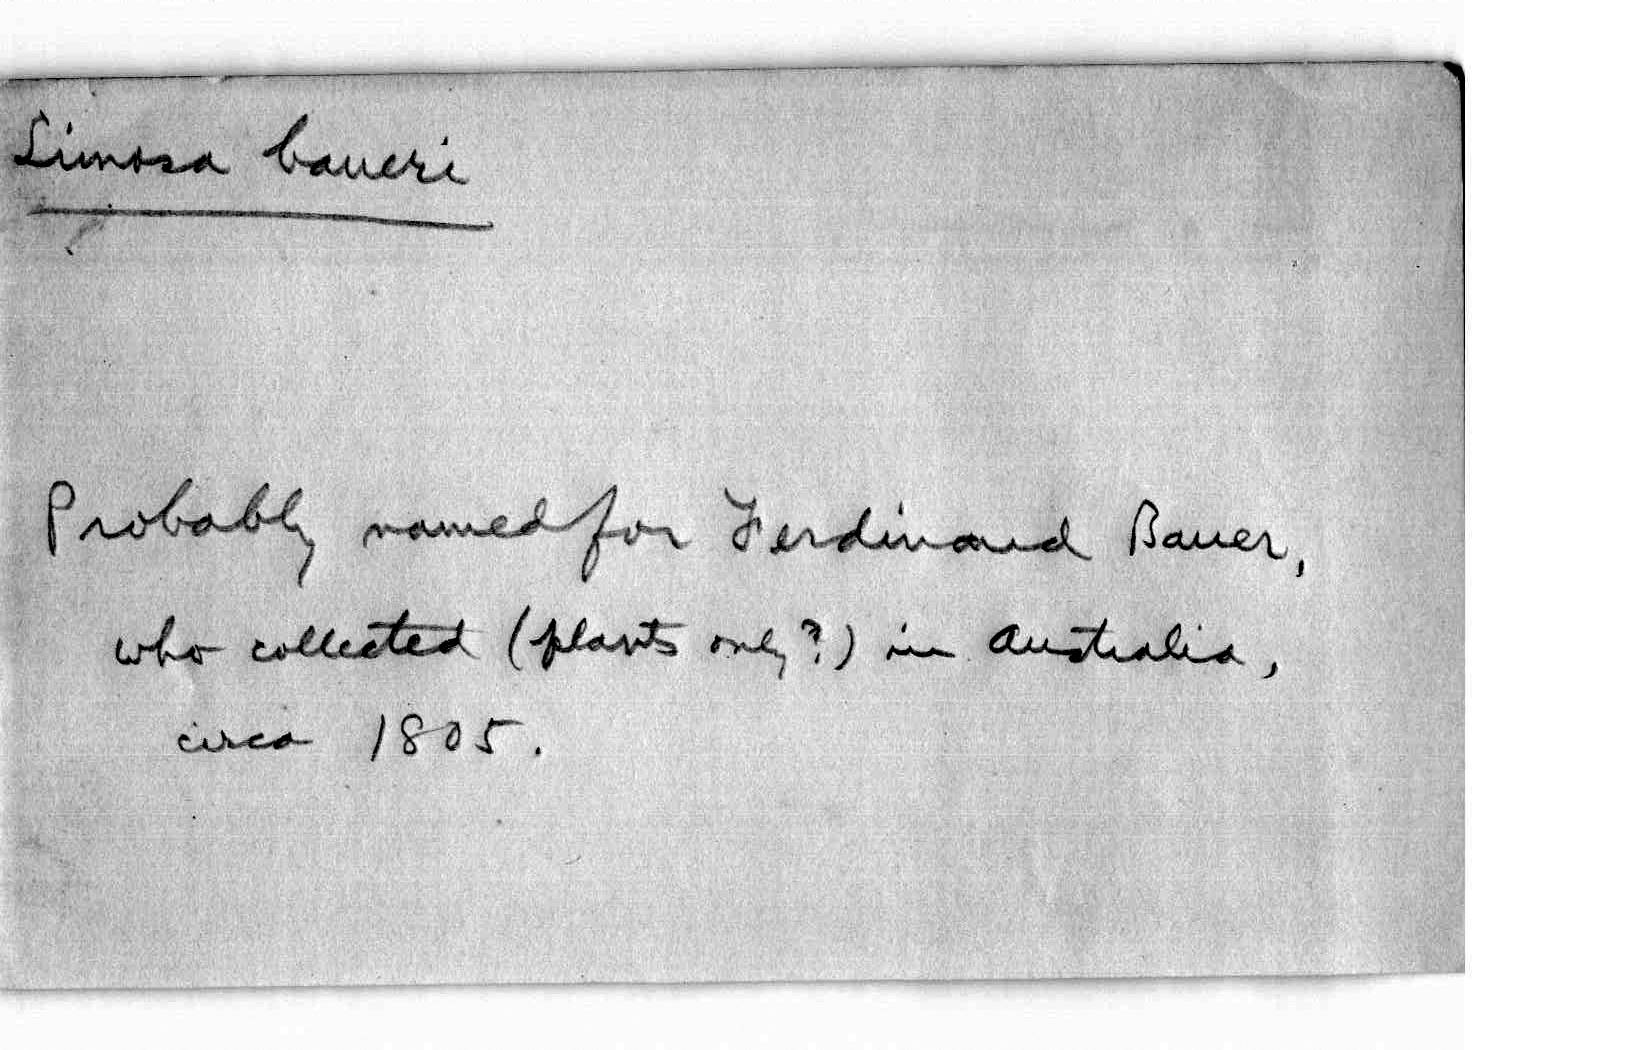 Limosa baueri
Probably named for Ferdinand Bauer,
who collected (plants only?) in Australia,
circa 1805.